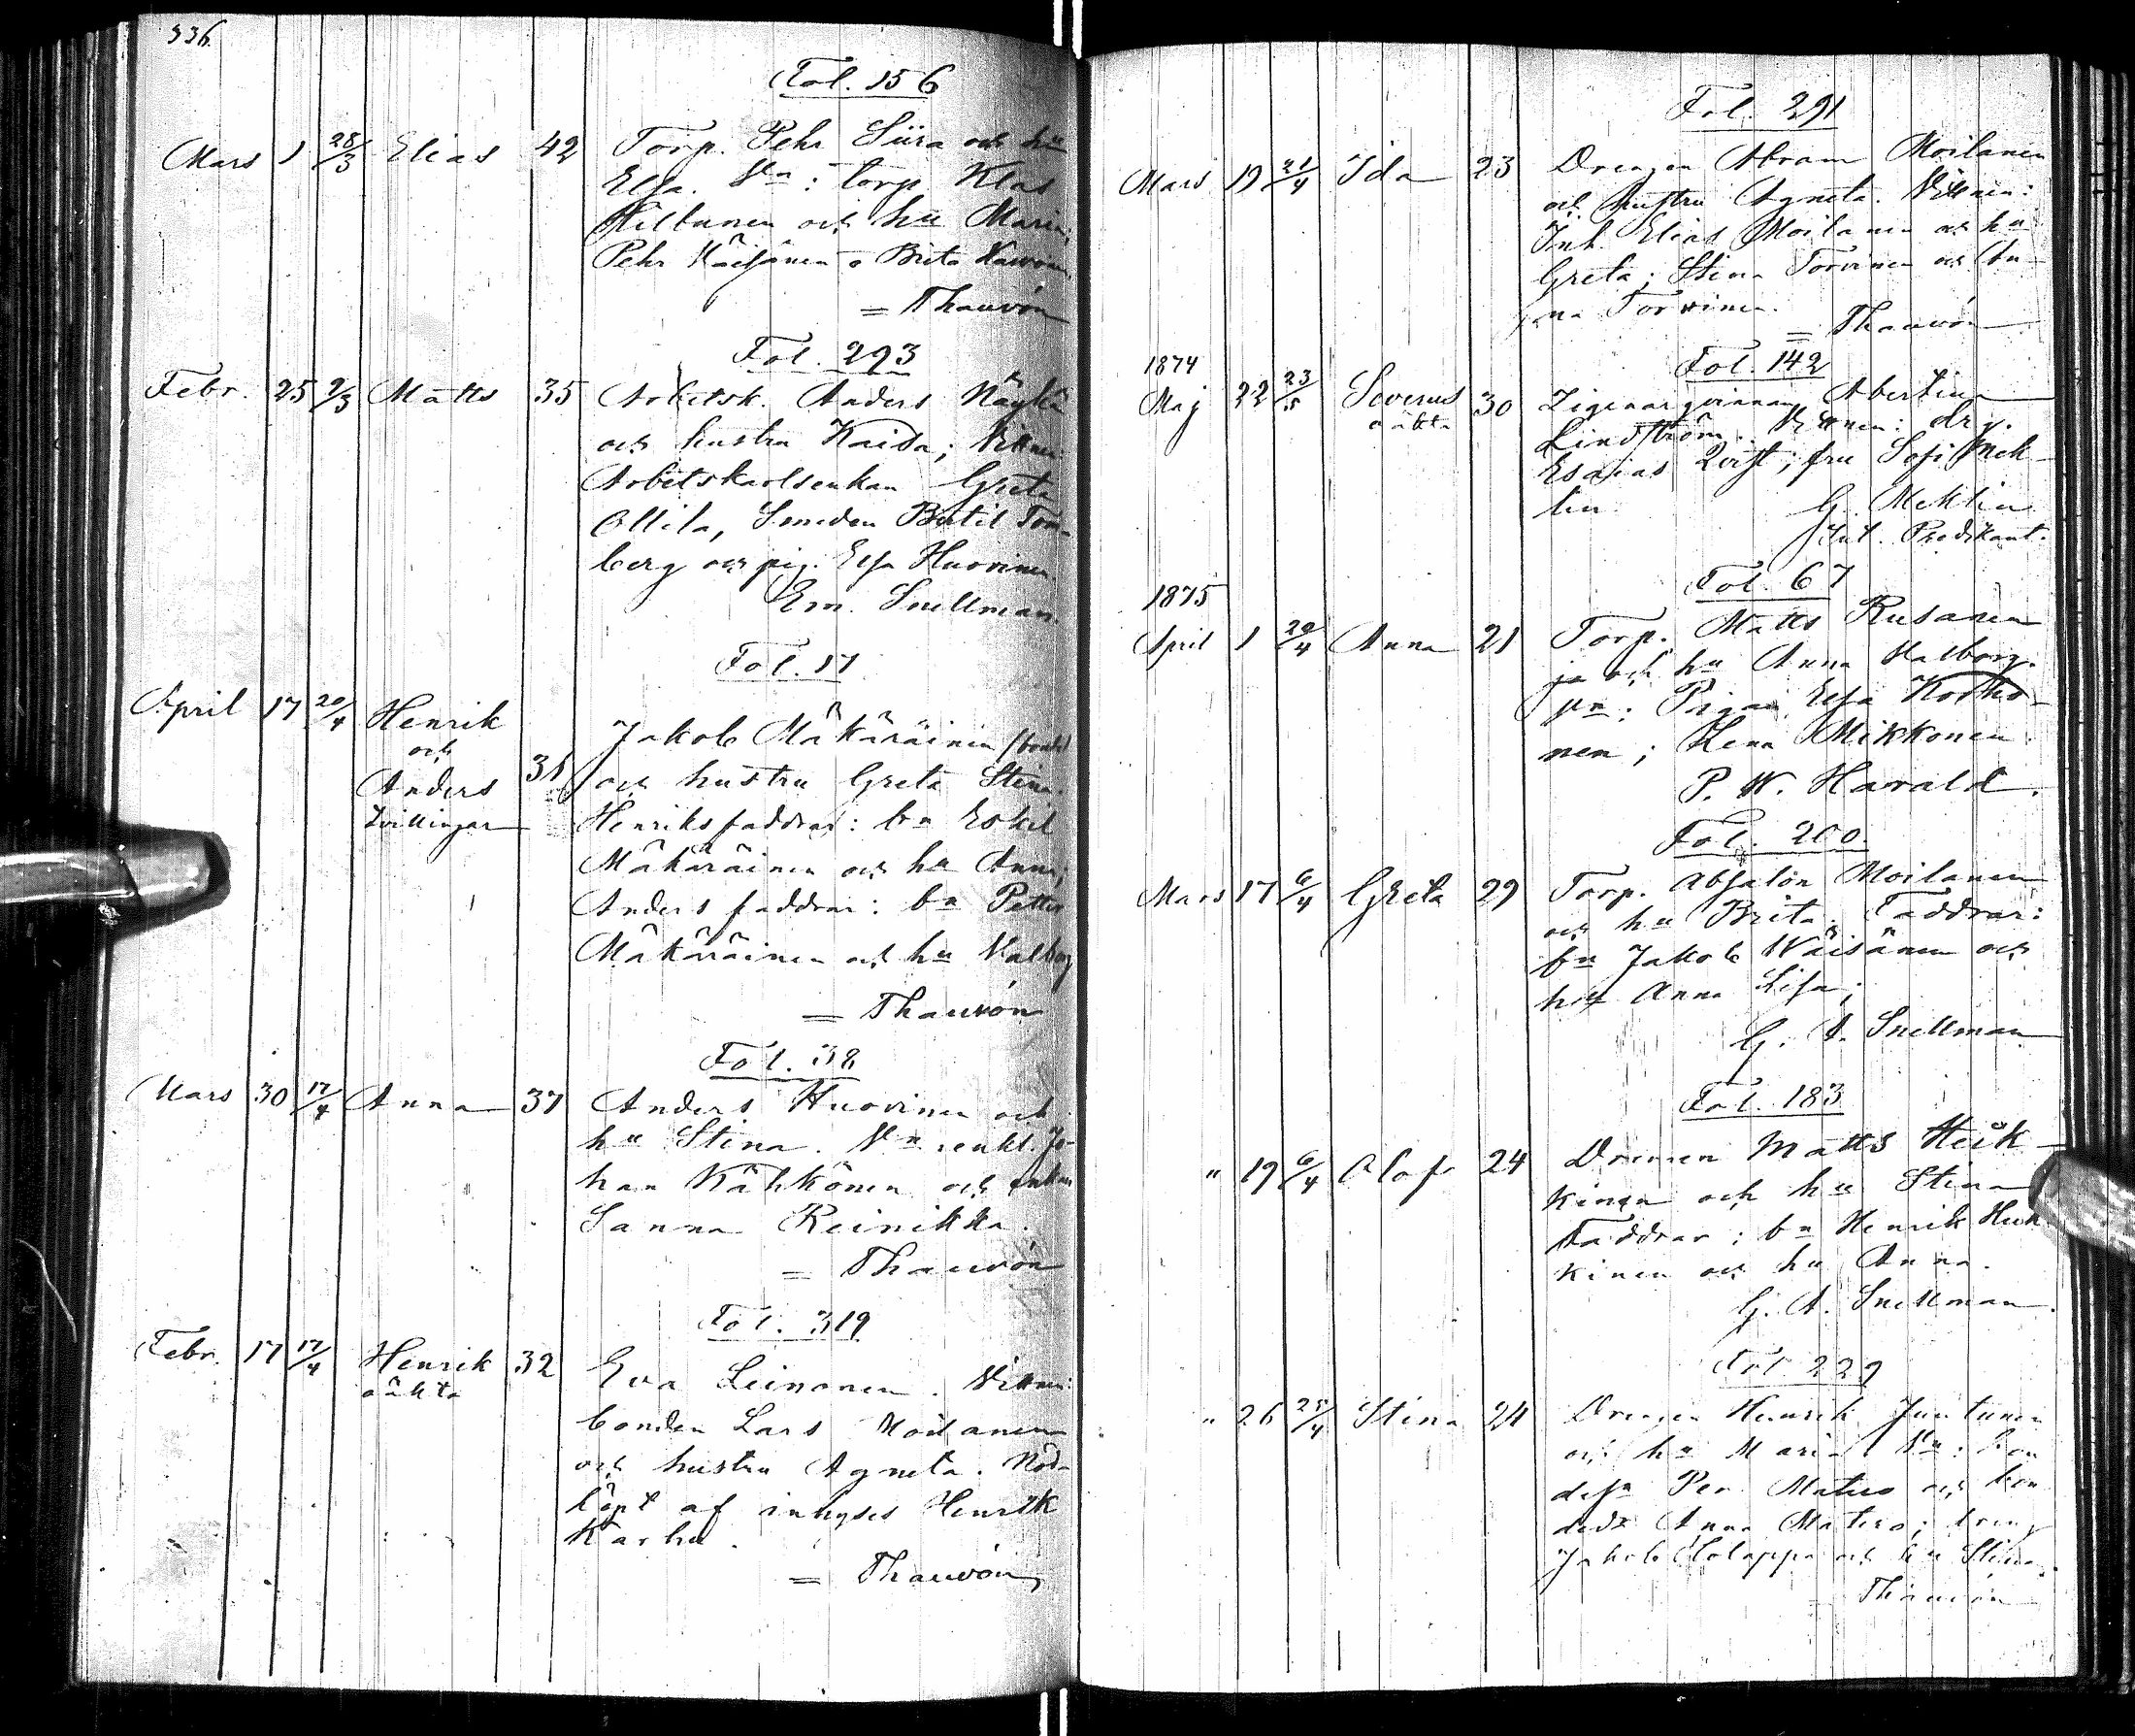 336.
Fol. 156
Mars 1 28/3 Elias 42 Torp. Pehr Siira och hu
Elsa. Vn: torp. Klas
Hiltunen och hu Maria;
Pehr Käisänen o Brita
= Thauvón
Fol. 293
Febr. 25 2/3 Matts 35 Arbetsk. Anders
och hustru Kaisa; Vittnen:
Arbetskarlsenkan Greta
Ollila, Smeden Bertil Torn-
berg och pig. Elsa Huovinen.
Em. Snellman.
Fol. 17
April 17 20/4 Henrik
och
Anders
Tvillingar
31
Jakob Mäkäräinen
och hustru Greta Stina.
Henriks faddrar: bn Eskil
Mäkäräinen och hu Anna;
Anders faddrar: bn Petter
Mäkäräinen och hu Valborg
= Thauvón
Fol. 38
Mars 30 17/4 Anna 37 Anders Huovinen och
hu Stina. Vn: enkl. Jo-
han Kähkönen och enkan
Sanna Reinikka.
= Thauvón
Fol. 319
Febr. 17 17/4 Henrik 32 Eva Leinonen. Vittnen:
oäkta
bonden Lars Moilanen
och hustru Agneta. Nöd-
löpt af inhyses Henrik
Karhu.
= Thauvón
Fol. 291
Mars 19 21/4 Ida 23 Drengen Abram Moilanen
och hustru Agneta. Vittnen:
Inh. Elias Moilanen och hu
Greta; Stina Torvinen och An-
na Torvinen.
= Thauvón
Fol. 142
1874
Maj 22 23/5 Severus 30 Zigenarqvinnan Abertina
oäkta
Lindström. Vittnen: drg.
Esaias Qvist; fru Sofi Mek-
lin
G. Meklin
Predikant.
Fol. 67
1875
April 1 20/4 Anna 21 Torp. Matts Rusanen
och hu Anna Valborg.
Vn: Pigan Elsa Korho-
nen; Lena Mikkonen.
P. W. Harald.
Fol. 200.
Mars 17 6/4 Greta 29 Torp. Absalon Moilanen
och hu Brita. Faddrar:
bn Jakob Wäisänen och
hu Anna Lisa;
G. A. Snellman
Fol. 183
" 19 6/4 Olof 24 Drengen Matts Heik-
kinen och hu Stina
Faddrar: bn Henrik Heik-
kinen och hu Anna.
G. A. Snellman.
Fol. 229
" 26 25/4 Stina 24 Drengen Henrik Juntunen
och hu Maria Vn: bon-
Per Matero och bon-
Anna Matero; dreng
Jakob Holappa och hu Stina.
= Thauvón